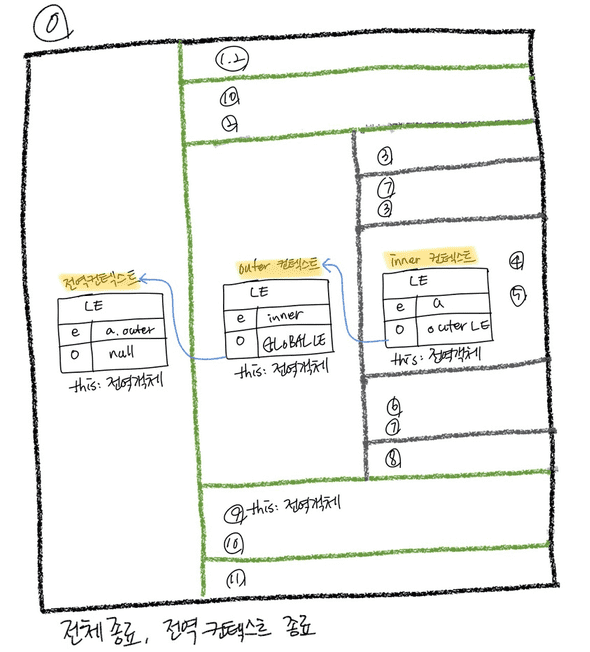 0
1.2
10
2
3
7
3
전역컨텍스트
LE
e a.outer
o null
this: 전역객체
outer 컨텍스트
LE
e inner
o GLOBAL LE
this: 전역객체
inner 컨텍스트
LE
e a
o outer LE
this: 전역객체
4
5
6
7
8
9 this: 전역객체
10
11
전체 종료, 전역 컨텍스트 종료